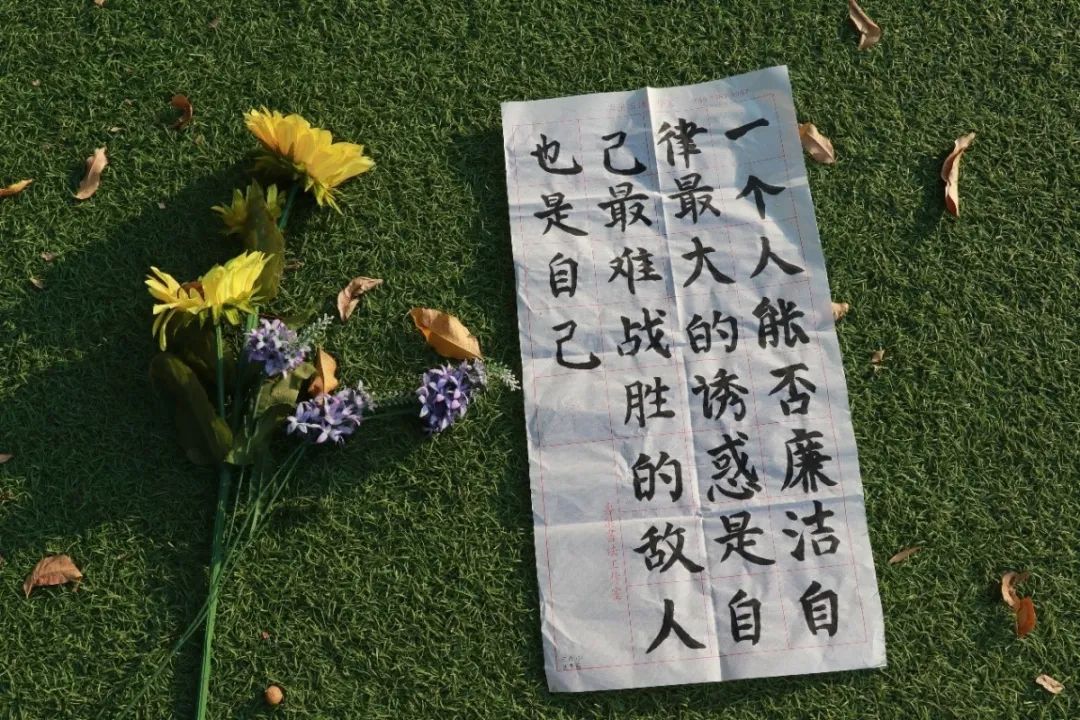 一个人能否廉洁自
律最大的诱惑是自
己最难战胜的敌人
也是自己